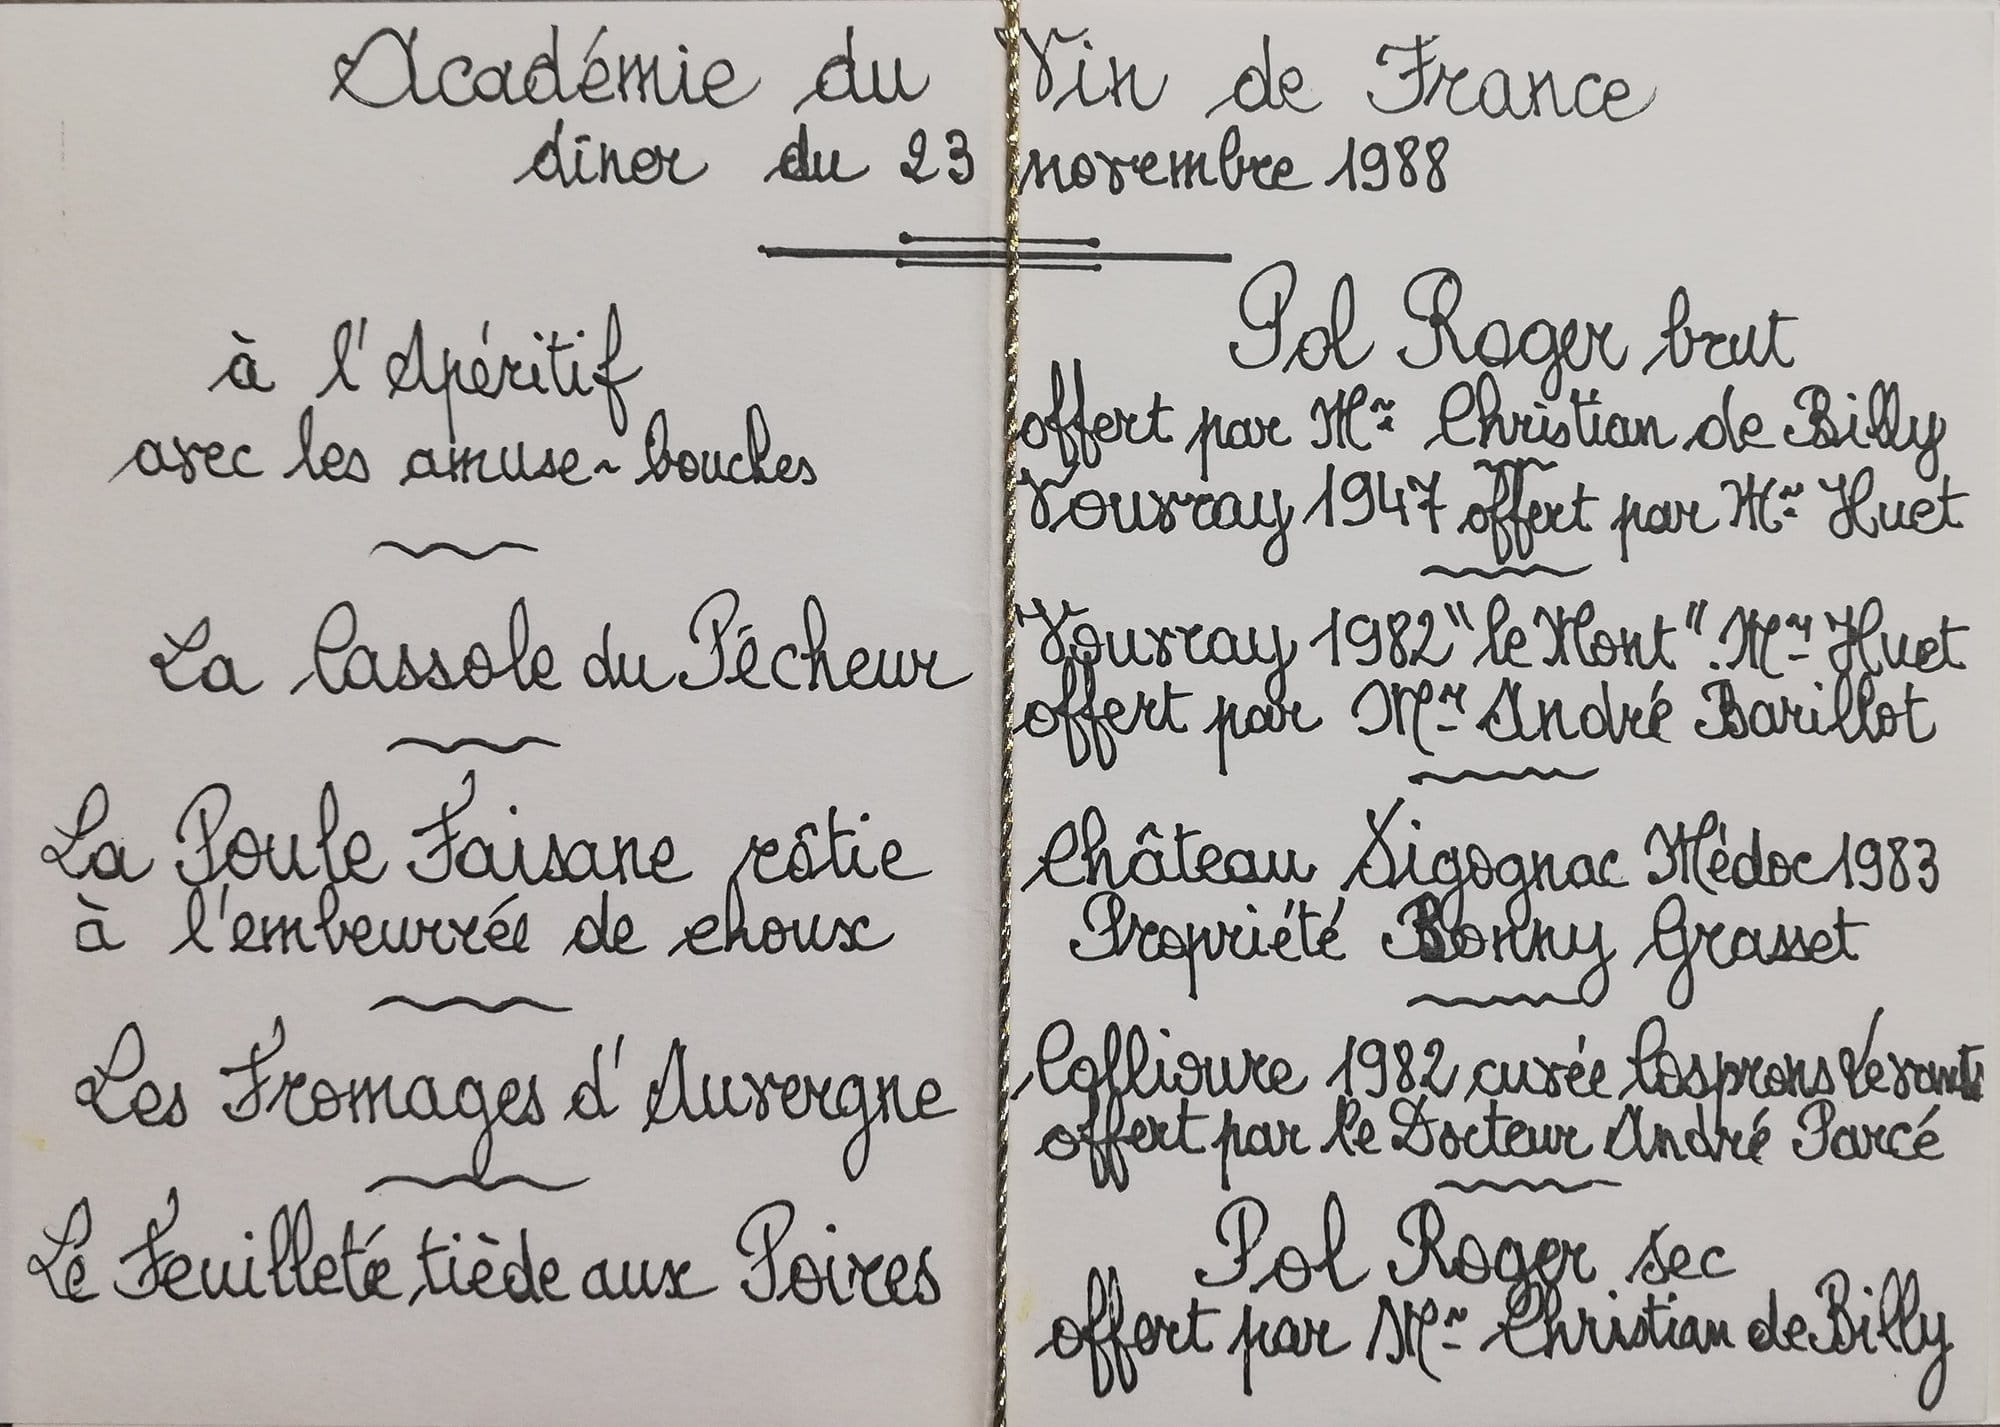 Académie du Vin de France
dîner du 23 novembre 1988
à l'Apéritif
avec les amuse-bouches
La Cassole du Pécheur
La Poule Faisane rôtie
à l'embeurrée de choux
Les Fromages d'Auvergne
Le Feuilleté tiède aux Poires
Pol Roger brut
offert par Mr Christian de Billy
Vouvray 1947 offert par Mr Huet
Vouvray 1982 "le Mont". Mr Huet
offert par Mr André Barillot
Château Sigognac Médoc 1983
Propriété Bonny Grasset
Collioure 1982 cuvée Cosprons Levants
offert par le Docteur André Parcé
Pol Roger sec
offert par Mr Christian de Billy